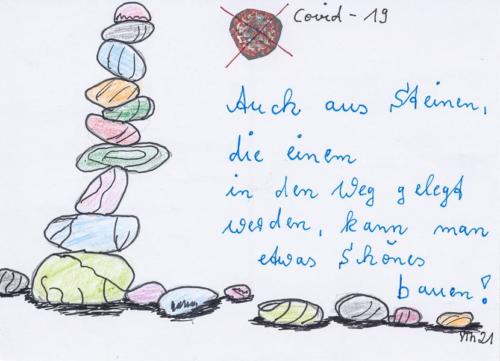 Covid-19
Auch aus Steinen,
die einem
in den Weg gelegt
werden, kann man
etwas Schönes
bauen!